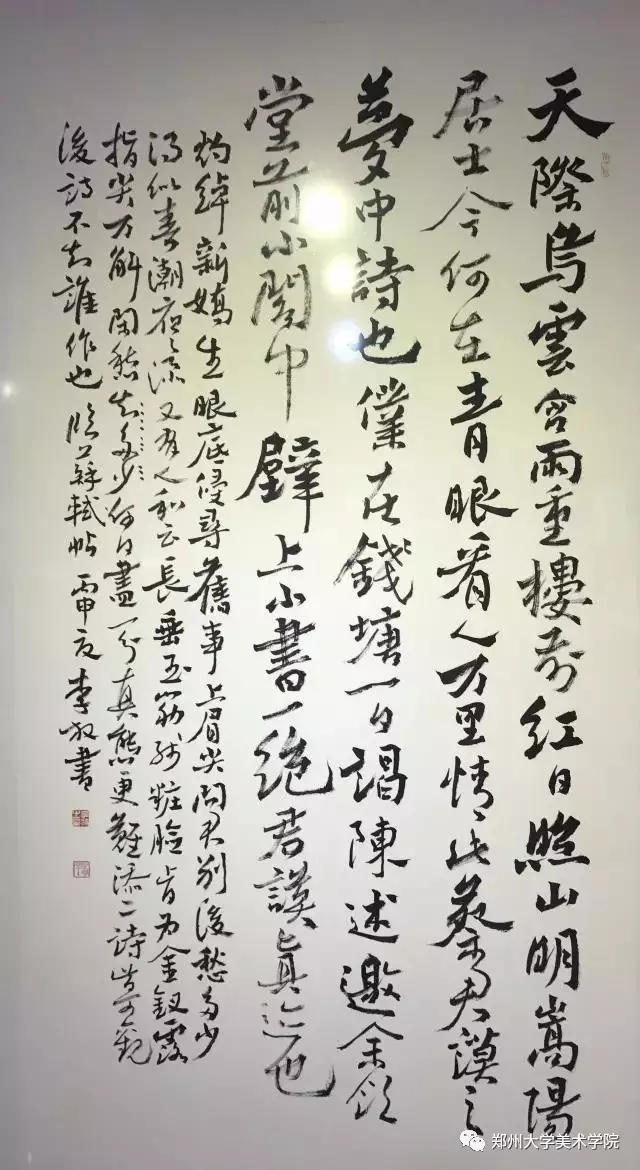 天際烏雲含雨重樓前紅日照山明嵩陽
居士今何在青眼看人万里情此蔡君謨之
夢中詩也僕在錢塘一日謁陳述邀余飲
堂前小閣中壁上小書一絕君謨真迹也
灼綽新嬌生眼底侵尋舊事上眉尖問君別後愁多少
得似春潮夜夜添又有人和云長垂玉筋殘粧臉肯为金釵露
指尖万斛閑愁知多少何日盡一分真態更難添二詩皆可觀
後詩不知誰作也臨蘇軾帖丙申夏李放書
郑州大学美术学院